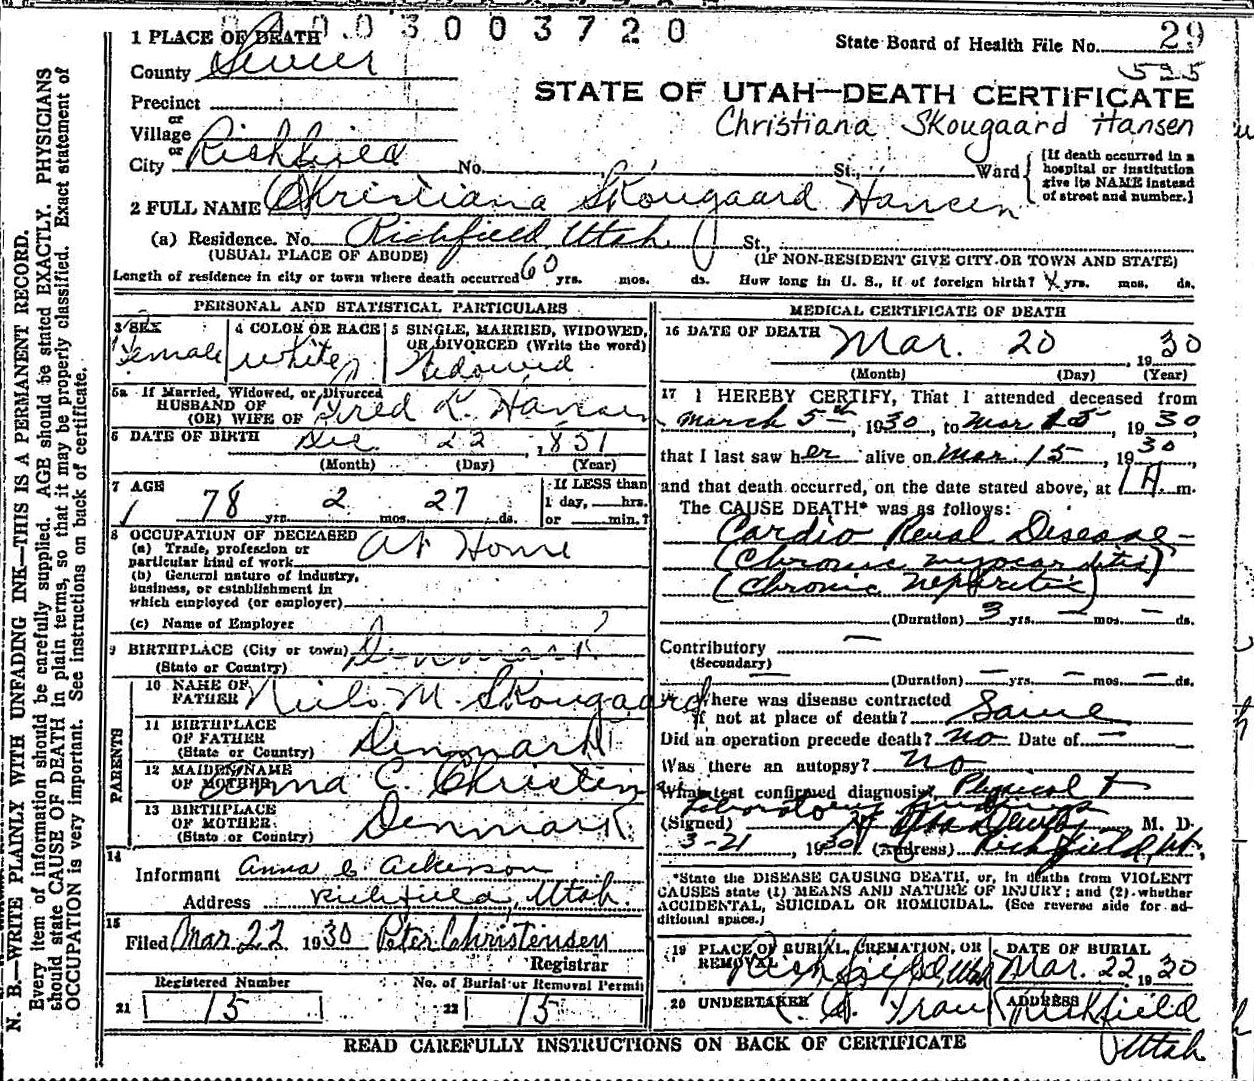 0 0 3 0 0 3 7 2 0
1 PLACE OF DEATH
State Board of Health File No. 29
County Sevier
535
STATE OF UTAH—DEATH CERTIFICATE
Precinct
or
Village
Christiana Skougaard Hansen
or
City Richfield No. St., Ward
(If death occurred in a
hospital or institution
give its NAME instead
of street and number.)
2 FULL NAME Christiana Skougaard Hansen
(a) Residence. No. Richfield, Utah St.,
(USUAL PLACE OF ABODE) (IF NON-RESIDENT GIVE CITY OR TOWN AND STATE)
Length of residence in city or town where death occurred 60 yrs. mos. ds. How long in U. S., if of foreign birth? yrs. mos. ds.
PERSONAL AND STATISTICAL PARTICULARS
3 SEX
Female
4 COLOR OR RACE
White
5 SINGLE, MARRIED, WIDOWED,
OR DIVORCED (Write the word)
Widowed
5a If Married, Widowed, or Divorced
HUSBAND OF
(OR) WIFE OF Fred L. Hansen
6 DATE OF BIRTH Dec 22, 1851
(Month) (Day) (Year)
7 AGE
78 yrs. 2 mos. 27 ds.
If LESS than
1 day, hrs.
or min.?
8 OCCUPATION OF DECEASED
(a) Trade, profession or
particular kind of work At Home
(b) General nature of industry,
business, or establishment in
which employed (or employer)
(c) Name of Employer
9 BIRTHPLACE (City or town) Denmark
(State or Country)
PARENTS
10 NAME OF
FATHER Niels M. Skougaard
11 BIRTHPLACE
OF FATHER
(State or Country) Denmark
12 MAIDEN NAME
OF MOTHER Anna C. Christin
13 BIRTHPLACE
OF MOTHER
(State or Country) Denmark
14
Informant Anna C Ackerson
Address Richfield, Utah.
15
Filed Mar 22 1930 Peter Christensen
Registrar
Registered Number
21 15
No. of Burial or Removal Permit
22 15
MEDICAL CERTIFICATE OF DEATH
16 DATE OF DEATH Mar. 20, 1930
(Month) (Day) (Year)
17 I HEREBY CERTIFY, That I attended deceased from
March 5th, 1930, to Mar 15, 1930,
that I last saw her alive on Mar. 15, 1930,
and that death occurred, on the date stated above, at 1 A. m.
The CAUSE DEATH* was as follows:
Cardio Renal Disease -
(Chronic myocarditis)
(Chronic Nephritis)
(Duration) 3 yrs. — mos. — ds.
Contributory —
(Secondary)
— (Duration) — yrs. — mos. — ds.
Where was disease contracted
if not at place of death? Same
Did an operation precede death? No Date of —
Was there an autopsy? No
What test confirmed diagnosis? Physical +
Laboratory findings
(Signed) M. D.
3-21, 1930 (Address) Richfield, Ut,
*State the DISEASE CAUSING DEATH, or, in deaths from VIOLENT
CAUSES state (1) MEANS AND NATURE OF INJURY; and (2) whether
ACCIDENTAL, SUICIDAL OR HOMICIDAL. (See reverse side for ad-
ditional space.)
19 PLACE OF BURIAL, CREMATION, OR
REMOVAL Richfield, Utah
DATE OF BURIAL
Mar. 22 1930
20 UNDERTAKER
ADDRESS
Richfield
Utah
READ CAREFULLY INSTRUCTIONS ON BACK OF CERTIFICATE
N. B.—WRITE PLAINLY WITH UNFADING INK—THIS IS A PERMANENT RECORD.
Every item of information should be carefully supplied. AGE should be stated EXACTLY. PHYSICIANS
should state CAUSE OF DEATH in plain terms, so that it may be properly classified. Exact statement of
OCCUPATION is very important. See instructions on back of certificate.